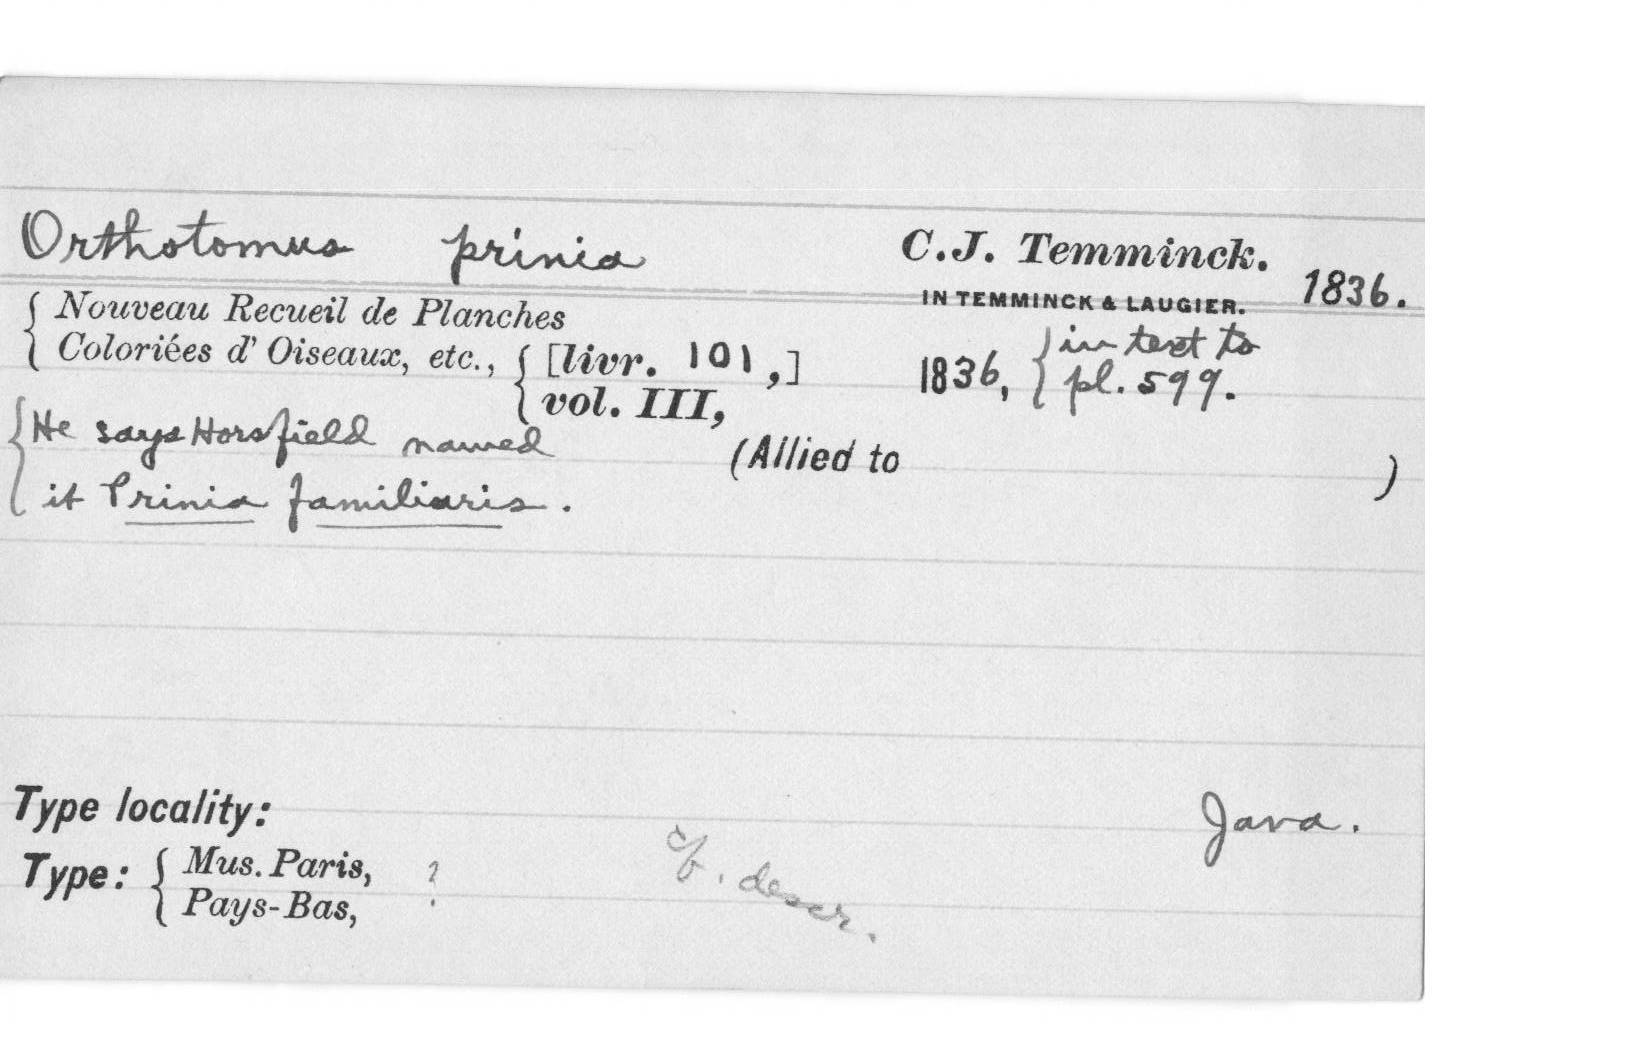 Orthotomus prinia C.J. Temminck. 1836.
IN TEMMINCK & LAUGIER.
{ Nouveau Recueil de Planches
Coloriées d' Oiseaux, etc., { [livr. 101,] 1836, { in text to
vol. III, pl. 599.
{ He says Horsfield named (Allied to )
it Prinia familiaris.
Type locality: Java.
Type: { Mus. Paris, ?
Pays-Bas,
c/f. descr.